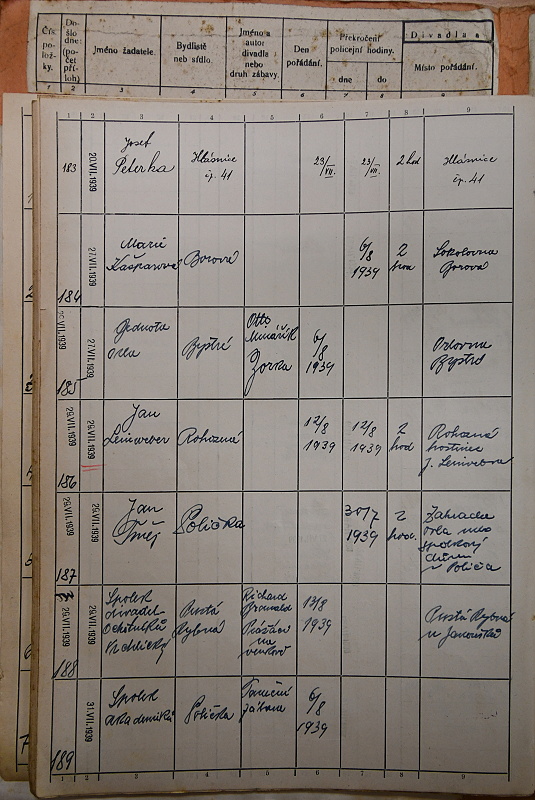 Čís. po- ložky.
Do- šlo dne: (po- čet pří- loh)
Jméno žadatele.
Bydliště neb sídlo.
Jméno a autor divadla nebo druh zábavy.
Den pořádání.
Překročení policejní hodiny.
dne
do
Divadla a
Místo pořádání.
1 2 3 4 5 6 7 8 9
183 20.VII.1939 Josef Peterka Hlásnice čp. 41 23/VII. 23/VII. 2 hod Hlásnice čp. 41
184 27.VII.1939 Marie Kašparová Borová 6/8 1939 2 hod Sokolovna Borová
185 27.VII.1939 Jednota Orla Bystré Otto Minářík Zorka 6/8 1939 Orlovna Bystré
186 29.VII.1939 29.VII.1939 Jan Leinweber Rohozná 12/8 1939 12/8 1939 2 hod Rohozná hostinec J. Leinvebra
187 29.VII.1939 29.VII.1939 Jan Polička 30/7 1939 2 hod. Zahrada Orla nebo spolkový dům v Poličce
188 29.VII.1939 29.VII.1939 Spolek divadel. ochotníků Pustá Rybná Richard na venkově 13/8 1939 Pustá Rybná u
189 31.VII.1939 Spolek akademiků Polička Taneční zábava 6/8 1939
1 2 3 4 5 6 7 8 9